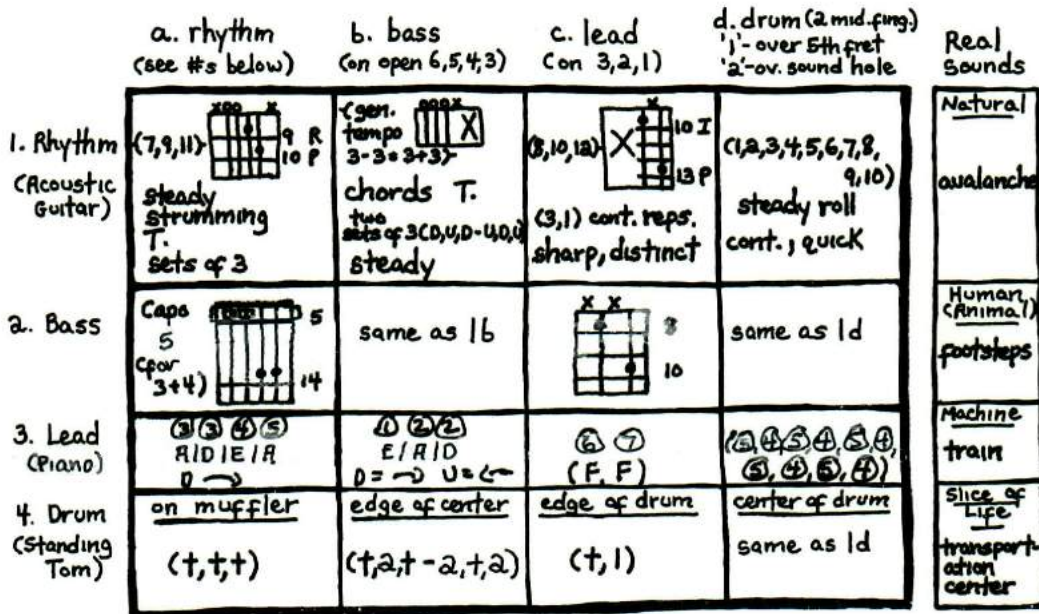 a. rhythm
(see #s below)
b. bass
(on open 6,5,4,3)
c. lead
(on 3,2,1)
d. drum (2 mid. fing.)
'1'- over 5th fret
'2'-ov. sound hole
Real
Sounds
1. Rhythm
(Acoustic
Guitar)
xoo x
(7,9,11)
9 R
10 P
steady
strumming
T.
sets of 3
(gen.
tempo
3-3=3+3)
ooox
X
chords T.
two
sets of 3(D,U,D-U,D,U)
steady
x
(8,10,12)
X
10 I
13 P
(3,1) cont. reps.
sharp, distinct
(1,2,3,4,5,6,7,8,
9,10)
steady roll
cont., quick
Natural
avalanche
2. Bass
Capo
5
(for
3+4)
5
14
same as 1b
x x
8
10
same as 1d
Human,
(Animal)
footsteps
3. Lead
(Piano)
3 3 4 5
A/D/E/A
D →
1 2 2
E/A/D
D = → U = ←
6 7
(F, F)
(5, 4, 5, 4, 5, 4,
5, 4, 5, 4)
Machine
train
4. Drum
(Standing
Tom)
on muffler
(t,t,t)
edge of center
(t,2,t - 2,t,2)
edge of drum
(t,1)
center of drum
same as 1d
Slice of
Life
transport-
ation
center